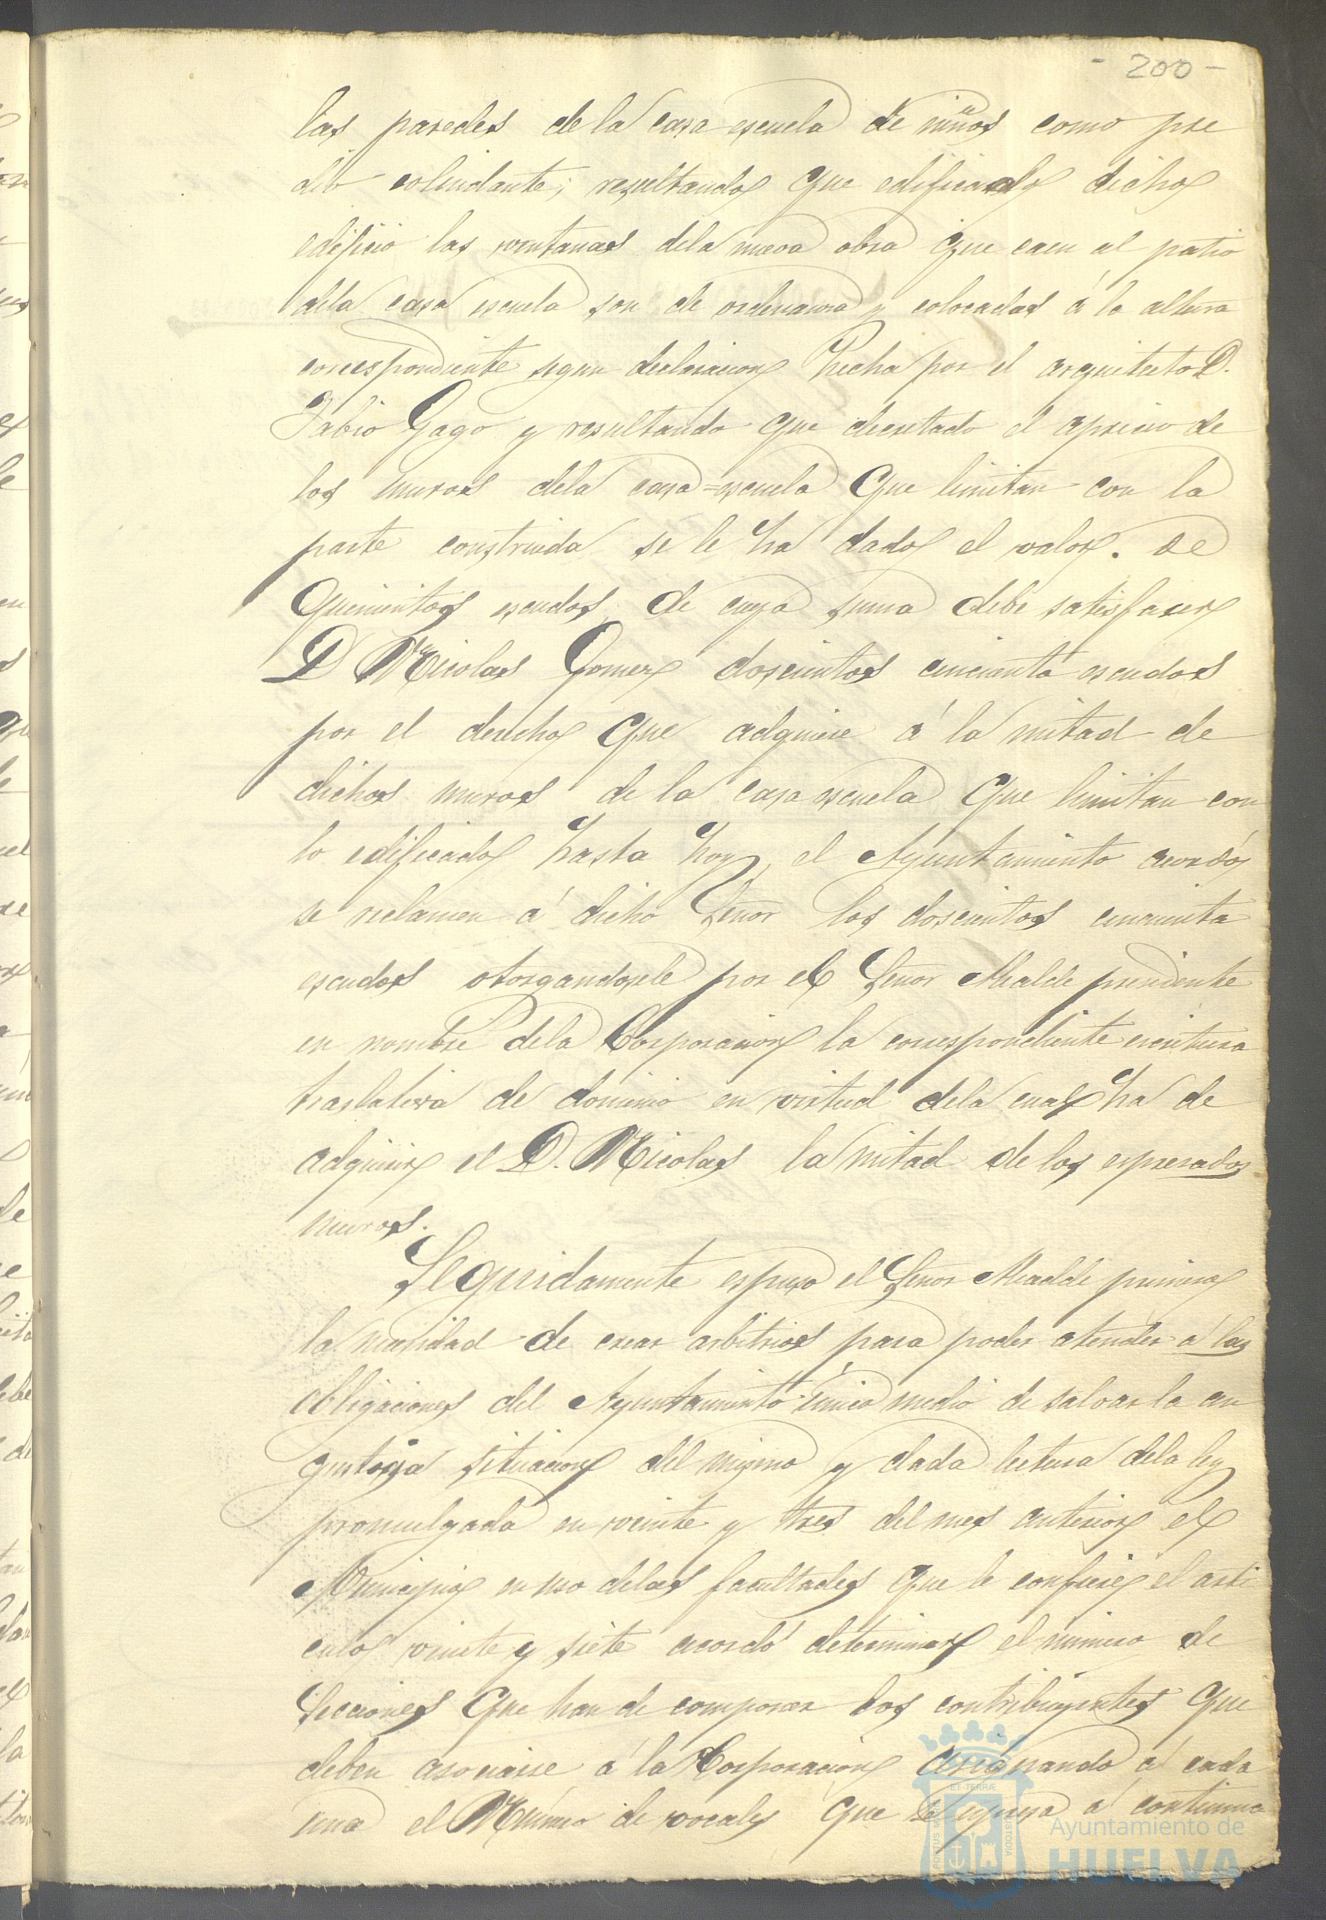 - 200 -
las paredes de la casa escuela de niños como pre
dio colindante; resultando que edificado dicho
edificio las ventanas dela nueva obra que caen al patio
dela casa escuela son de ordenanza y colocadas á la altura
correspondiente segun declaracion hecha por el arquitecto D.
Fabio Gago y resultando que decretado el aprecio de
los muros dela casa=escuela que limitan con la
parte construida se le ha dado el valor. de
Quinientos escudos de cuya suma debe satisfacer
D Nicolas Gomez doscientos cincuenta escudos
por el derecho que adquiere á la mitad de
dichos muros de la casa escuela que limitan con
lo edificado hasta hoy, el Ayuntamiento acordó
se reclamen á dicho Señor los doscientos cincuenta
escudos otorgandosele por el Señor Alcalde presidente
en nombre dela Corporacion la correspondiente escritura
traslativa de dominio en virtud dela cual ha de
adquirir el D. Nicolas la mitad de los espresados
muros.
Seguidamente espuso el Señor Alcalde primero
la necesidad de crear arbitrios para poder atender á las
obligaciones del Ayuntamiento único medio de salvar la an
gustiosa situacion del mismo y dada lectura dela ley
promulgada en veinte y tres del mes anterior el
Municipio en uso delas facultades que le confiere el arti
culo veinte y siete acordó determinar el numero de
Secciones que han de componer los contribuyentes que
deben asociarse á la Corporacion asignando á cada
una el Número de vocales que se espresa á continua
Ayuntamiento de
HUELVA